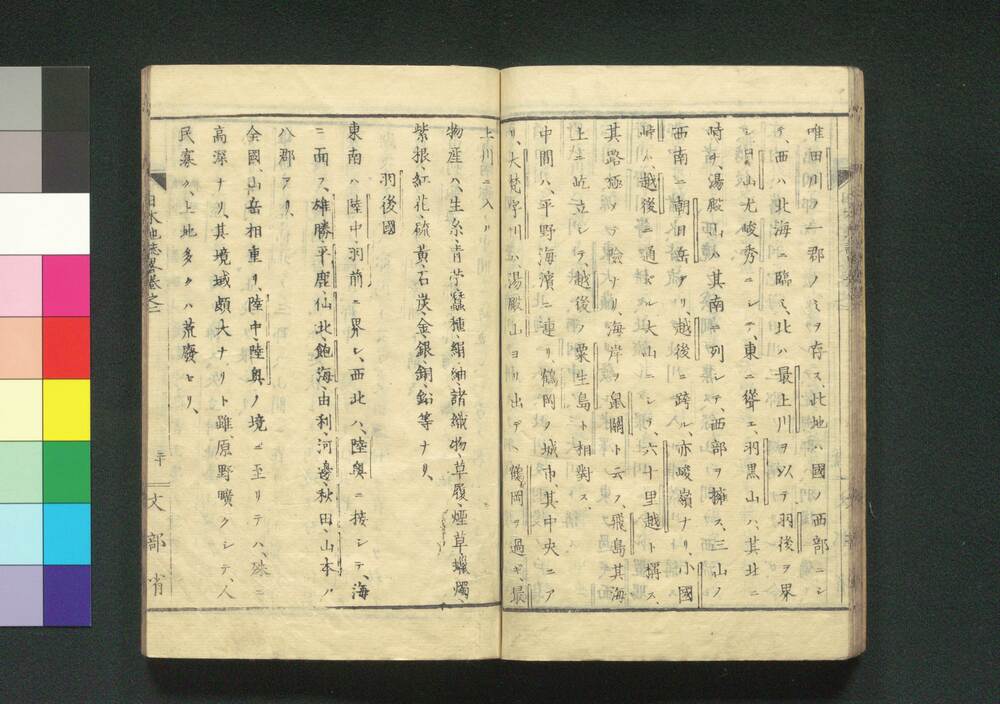 唯田川ノ一郡ノミヲ存ス、此地ハ國ノ西部ニシ
テ、西ハ北海ニ臨ミ、北ハ最上川ヲ以テ羽後ヲ界
シ、月山尤峻秀ニシテ、東ニ聳エ、羽黒山ハ、其北ニ
峙チ、湯殿山ハ其南ニ列シテ、西部ヲ擁ス、三山ノ
西南ニ朝日岳アリ、越後ニ跨ル、亦峻嶺ナリ、小國
峠ハ越後ニ通スル大山ニシテ、六十里越ト稱ス、
其路極メテ險ナリ、海岸ヲ鼠關ト云フ、飛島其海
上ニ屹立シテ、越後ノ粟生島ト相對ス、
中間ハ、平野海濱ニ連リ、鶴岡ノ城市其中央ニア
リ、大梵字川ハ湯殿山ヨリ出デ、鶴岡ヲ過ギ、最
上川ニ入ル
物産ハ、生糸、青苧、蠶種、絹、紬、諸織物、草履、煙草、蠟燭、
紫根、紅花、硫黄、石炭、金、銀、銅、鉛等ナリ、
羽後國
東南ハ陸中、羽前ニ界シ、西北ハ、陸奥ニ接シテ、海
ニ面ス、雄勝、平鹿、仙北、飽海、由利、河邊、秋田、山本ノ
八郡アリ、
全國、山岳相重リ、陸中、陸奥ノ境ニ至リテハ、殊ニ
高深ナリ、其境域頗大ナリト雖、原野曠クシテ、人
民寡ク、土地多クハ荒廢セリ、
日本地誌略 卷之二
三十
文部省